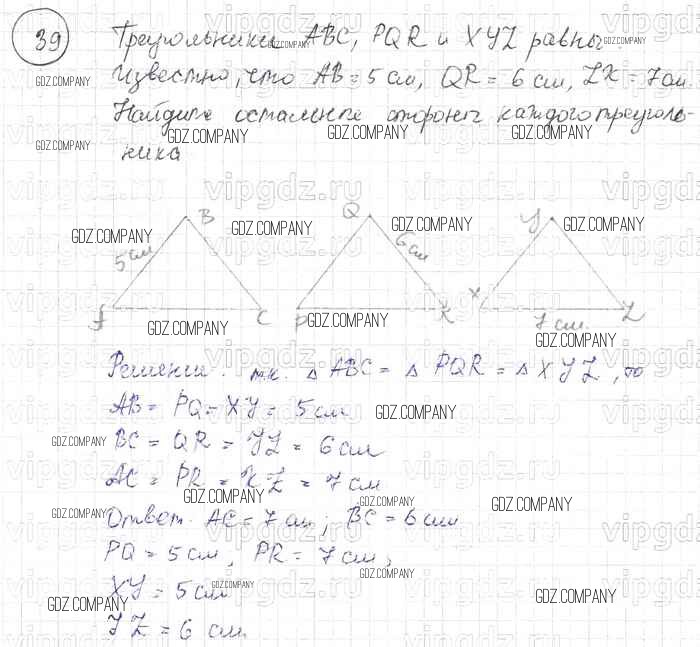 39
Треугольники ABC, PQR и XYZ равны
Известно, что AB = 5 см, QR = 6 см, ZX = 7 см
Найдите остальные стороны каждого треуголь-
ника
B Q Y
5 см 6 см
A C P R X Z
7 см
Решение. т.к. △ ABC = △ PQR = △ XYZ, то
AB = PQ = XY = 5 см
BC = QR = YZ = 6 см
AC = PR = XZ = 7 см
Ответ. AC = 7 см; BC = 6 см
PQ = 5 см, PR = 7 см,
XY = 5 см
YZ = 6 см
GDZ.COMPANY
vipgdz.ru